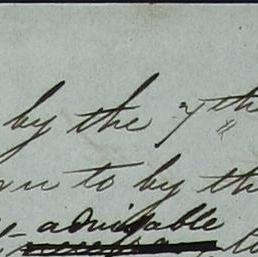 by the 7th
to by th
advisable